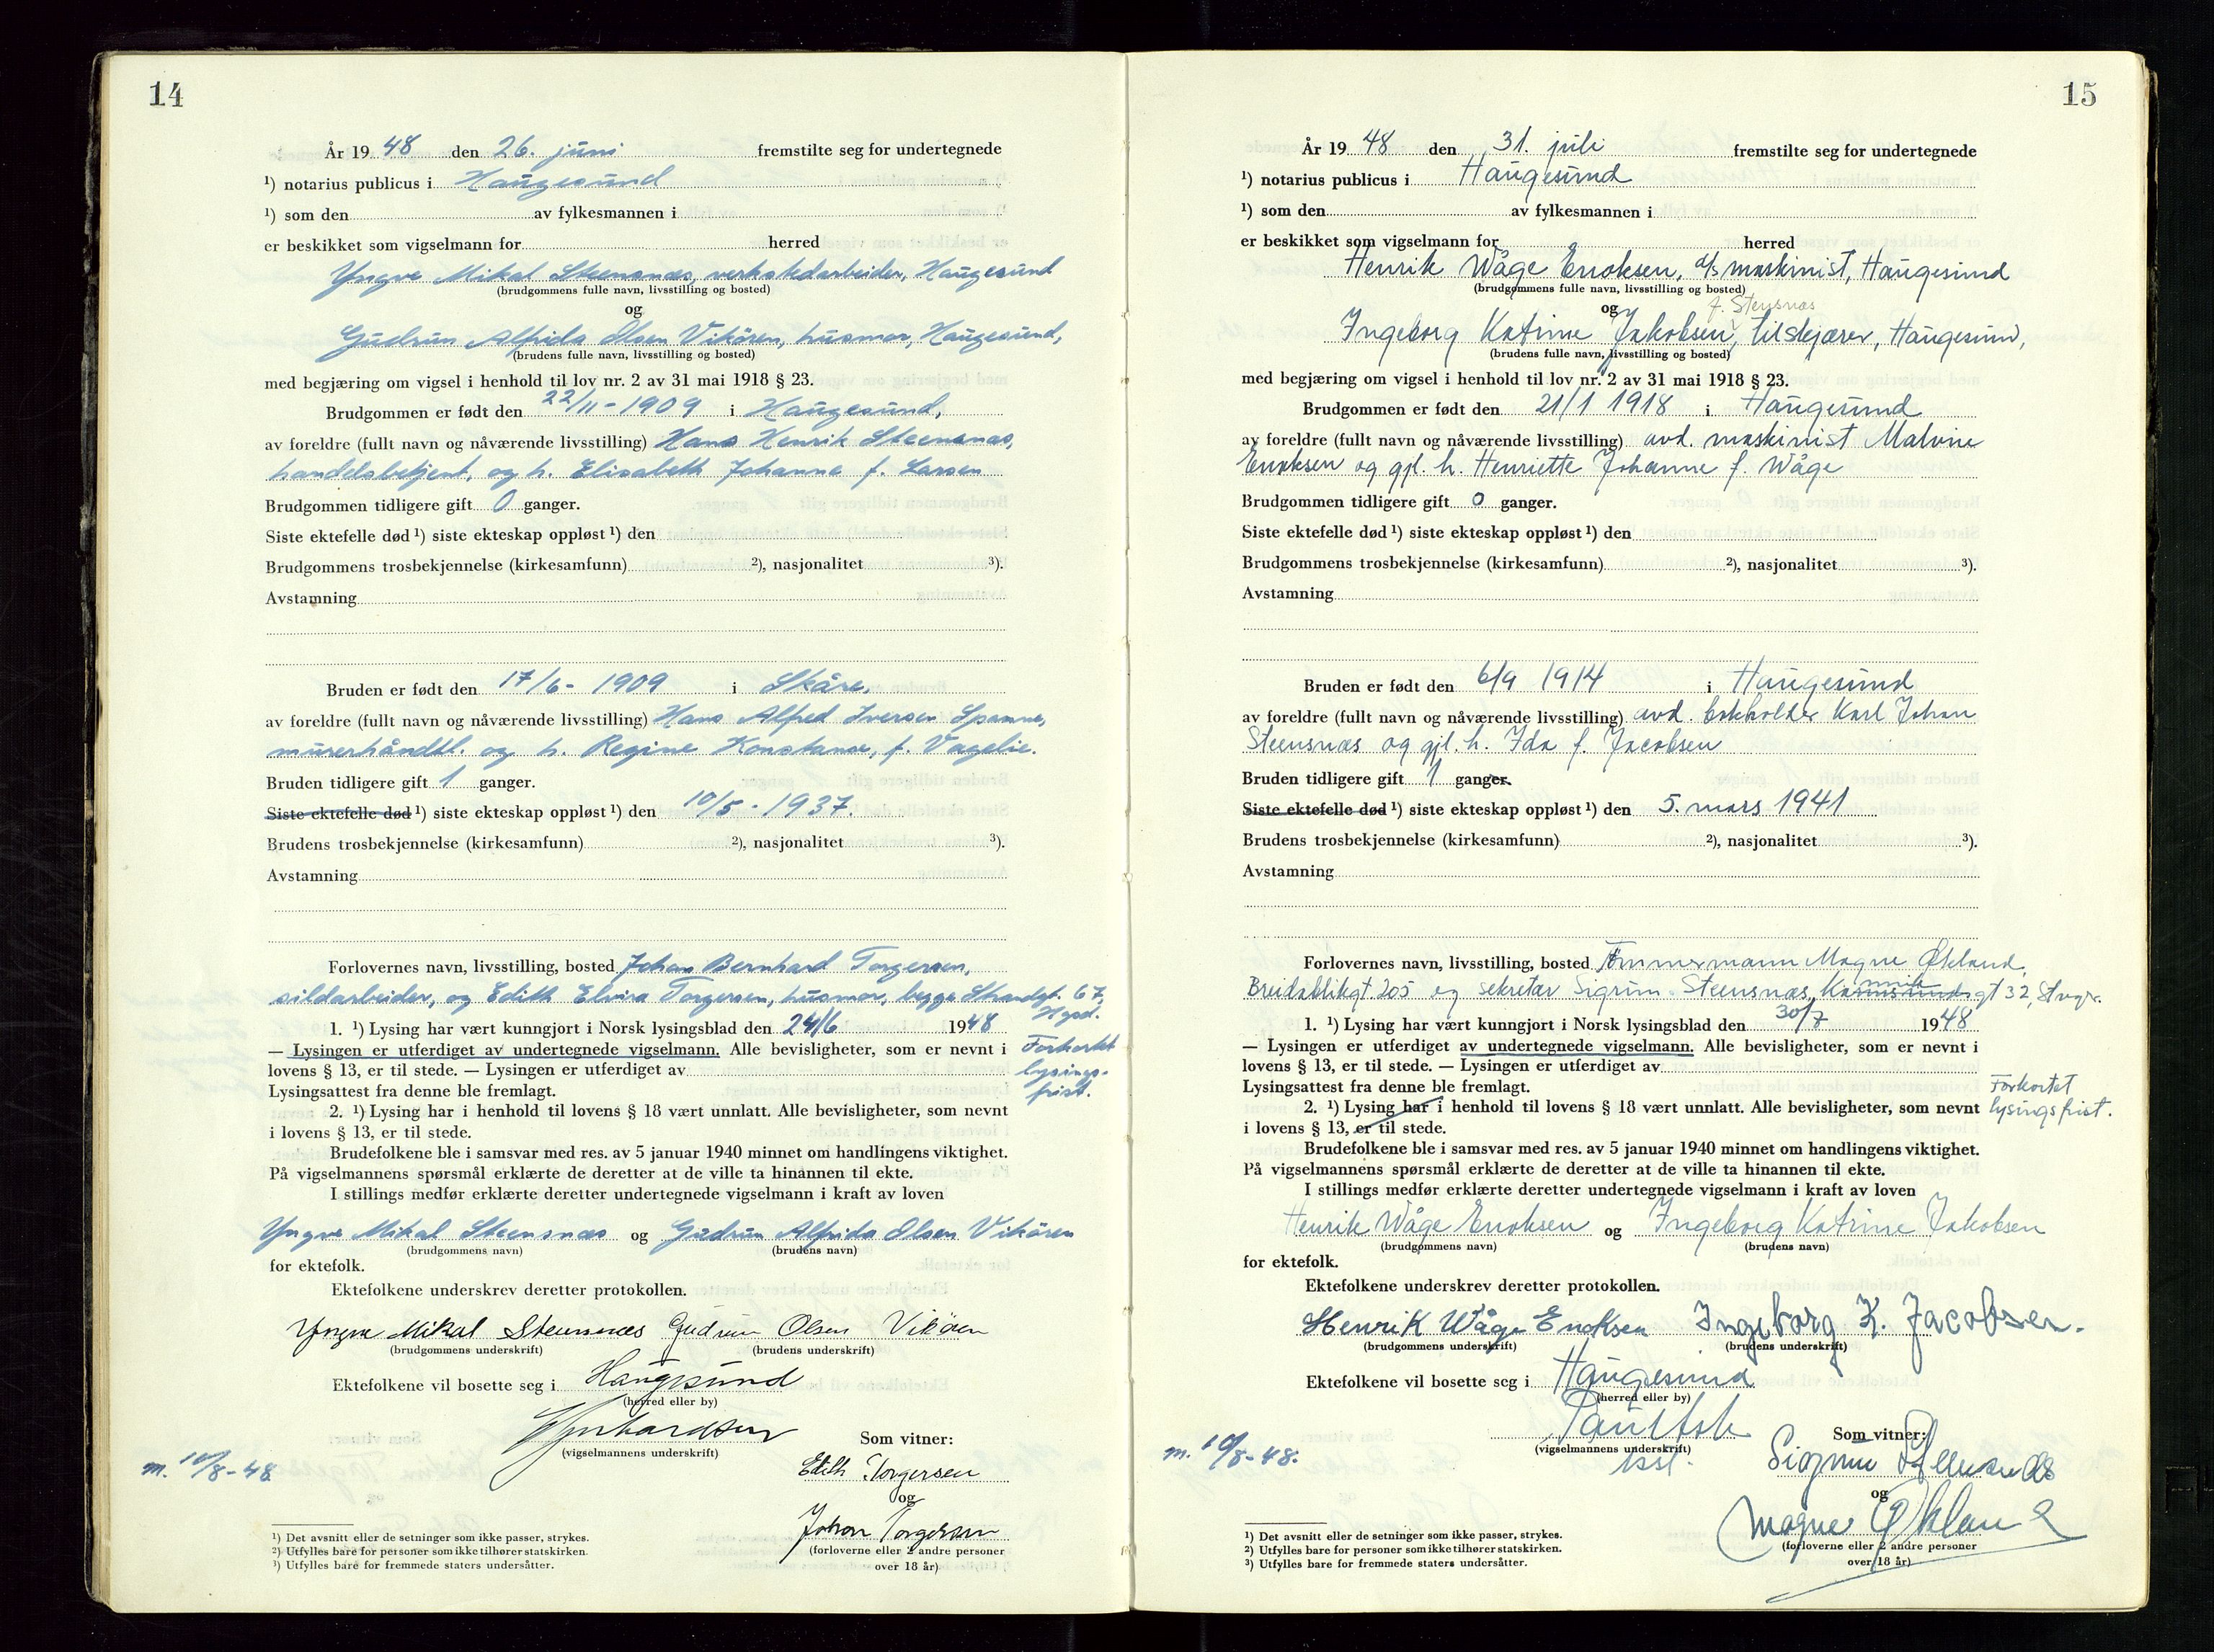 14
År 19 48 den 26. juni fremstilte seg for undertegnede
¹) notarius publicus i Haugesund
¹) som den av fylkesmannen i
er beskikket som vigselmann for herred
Yngve Mikal Steensnæs, verkstedarbeider, Haugesund
(brudgommens fulle navn, livsstilling og bosted)
og
Gudrun Alfrida Olsen Vikören, husmor, Haugesund,
(brudens fulle navn, livsstilling og bosted)
med begjæring om vigsel i henhold til lov nr. 2 av 31 mai 1918 § 23.
Brudgommen er født den 22/11 - 1909 i Haugesund,
av foreldre (fullt navn og nåværende livsstilling) Hans Henrik Steensnæs,
handelsbetjent, og h. Elisabeth Johanne f. Larsen
Brudgommen tidligere gift 0 ganger.
Siste ektefelle død ¹) siste ekteskap oppløst ¹) den
Brudgommens trosbekjennelse (kirkesamfunn) ²), nasjonalitet ³).
Avstamning
Bruden er født den 17/6 - 1909 i Skåre,
av foreldre (fullt navn og nåværende livsstilling) Hans Alfred Iversen Spanne,
murerhåndtl. og h. Regine Konstanse, f. Vagelie.
Bruden tidligere gift 1 ganger.
Siste ektefelle død ¹) siste ekteskap oppløst ¹) den 10/5 - 1937.
Brudens trosbekjennelse (kirkesamfunn) ²), nasjonalitet ³).
Avstamning
Forlovernes navn, livsstilling, bosted Johan Bernhard Torgersen,
sildarbeider, og Edith Elvira Torgersen, husmor, begge Strandgt. 67,
Hgsd.
1. ¹) Lysing har vært kunngjort i Norsk lysingsblad den 24/6 1948
— Lysingen er utferdiget av undertegnede vigselmann. Alle bevisligheter, som er nevnt i
lovens § 13, er til stede. — Lysingen er utferdiget av
Lysingsattest fra denne ble fremlagt.
Forkortet
lysings-
frist.
2. ¹) Lysing har i henhold til lovens § 18 vært unnlatt. Alle bevisligheter, som nevnt
i lovens § 13, er til stede.
Brudefolkene ble i samsvar med res. av 5 januar 1940 minnet om handlingens viktighet.
På vigselmannens spørsmål erklærte de deretter at de ville ta hinannen til ekte.
I stillings medfør erklærte deretter undertegnede vigselmann i kraft av loven
Yngve Mikal Steensnæs og Gudrun Alfrida Olsen Vikören
(brudgommens navn) (brudens navn)
for ektefolk.
Ektefolkene underskrev deretter protokollen.
Yngve Mikal Steensnæs Gudrun Olsen Vikören
(brudgommens underskrift) (brudens underskrift)
Ektefolkene vil bosette seg i Haugesund
(herred eller by)
(vigselmannens underskrift)
Som vitner:
m. 10/8-48
Edith Torgersen
og
Johan Torgersen
(forloverne eller 2 andre personer
over 18 år)
¹) Det avsnitt eller de setninger som ikke passer, strykes.
²) Utfylles bare for personer som ikke tilhører statskirken.
³) Utfylles bare for fremmede staters undersåtter.
15
År 19 48 den 31. juli fremstilte seg for undertegnede
¹) notarius publicus i Haugesund
¹) som den av fylkesmannen i
er beskikket som vigselmann for herred
Henrik Wåge Enoksen, a/s maskinist, Haugesund
(brudgommens fulle navn, livsstilling og bosted)
og
f. Stensnæs
Ingeborg Katrine Jakobsen, tilskjærer, Haugesund,
(brudens fulle navn, livsstilling og bosted)
med begjæring om vigsel i henhold til lov nr. 2 av 31 mai 1918 § 23.
Brudgommen er født den 21/1 1918 i Haugesund
av foreldre (fullt navn og nåværende livsstilling) avd. maskinist Malvin
Enoksen og gjl. h. Henriette Johanne f. Wåge
Brudgommen tidligere gift 0 ganger.
Siste ektefelle død ¹) siste ekteskap oppløst ¹) den
Brudgommens trosbekjennelse (kirkesamfunn) ²), nasjonalitet ³).
Avstamning
Bruden er født den 6/9 1914 i Haugesund
av foreldre (fullt navn og nåværende livsstilling) avd. bokholder Karl Johan
Steensnæs og gjl. h. Ida f. Jacobsen
Bruden tidligere gift 1 ganger.
Siste ektefelle død ¹) siste ekteskap oppløst ¹) den 5. mars 1941
Brudens trosbekjennelse (kirkesamfunn) ²), nasjonalitet ³).
Avstamning
Forlovernes navn, livsstilling, bosted Tømmermann Magne Økland,
Breidablikgt 205 og sekretær Sigrun Steensnæs, gt 32, Stvgr.
1. ¹) Lysing har vært kunngjort i Norsk lysingsblad den 30/7 1948
— Lysingen er utferdiget av undertegnede vigselmann. Alle bevisligheter, som er nevnt i
lovens § 13, er til stede. — Lysingen er utferdiget av
Lysingsattest fra denne ble fremlagt.
Forkortet
lysingsfrist.
2. ¹) Lysing har i henhold til lovens § 18 vært unnlatt. Alle bevisligheter, som nevnt
i lovens § 13, er til stede.
Brudefolkene ble i samsvar med res. av 5 januar 1940 minnet om handlingens viktighet.
På vigselmannens spørsmål erklærte de deretter at de ville ta hinannen til ekte.
I stillings medfør erklærte deretter undertegnede vigselmann i kraft av loven
Henrik Wåge Enoksen og Ingeborg Katrine Jakobsen
(brudgommens navn) (brudens navn)
for ektefolk.
Ektefolkene underskrev deretter protokollen.
Henrik Wåge Enoksen Ingeborg K. Jacobsen.
(brudgommens underskrift) (brudens underskrift)
Ektefolkene vil bosette seg i Haugesund
(herred eller by)
(vigselmannens underskrift)
Som vitner:
m. 10/8-48.
Sigrun Steensnæs
og
Magne Økland
(forloverne eller 2 andre personer
over 18 år)
¹) Det avsnitt eller de setninger som ikke passer, strykes.
²) Utfylles bare for personer som ikke tilhører statskirken.
³) Utfylles bare for fremmede staters undersåtter.